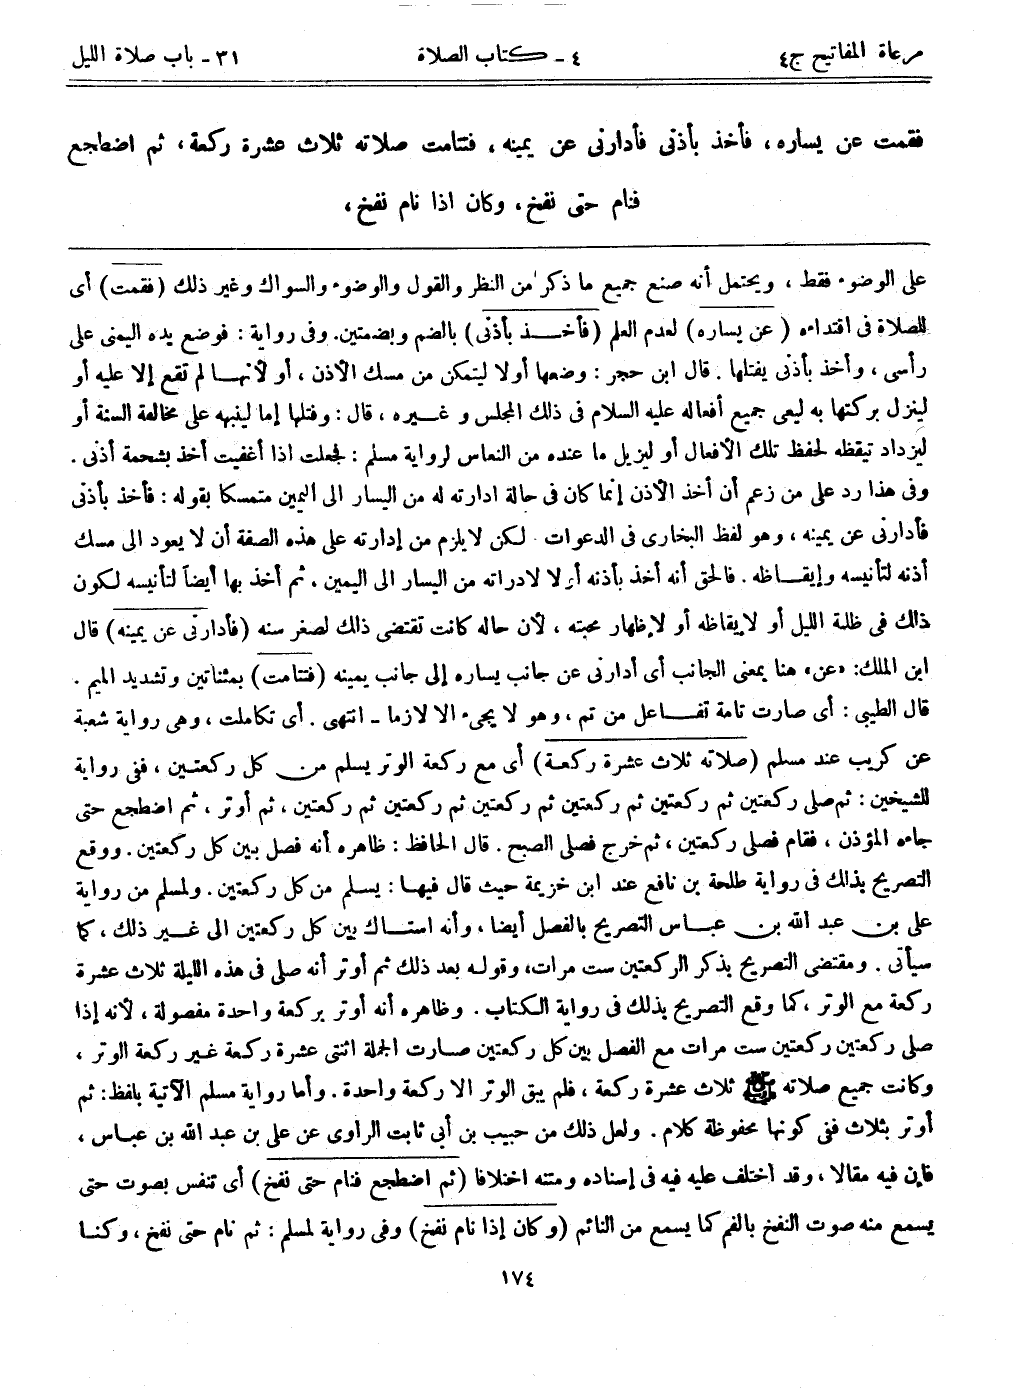 مرعاة المفاتيح ج٤
٤ - كتاب الصلاة
٣١ - باب صلاة الليل
فقمت عن يساره، فأخذ بأذنى فأدارنى عن يمينه، فتتامت صلاته ثلاث عشرة ركعة، ثم اضطجع
فنام حتى نفخ، وكان اذا نام نفخ،
على الوضوء فقط، ويحتمل أنه صنع جميع ما ذكر من النظر والقول والوضوء والسواك وغير ذلك (فقمت) أى
للصلاة فى اقتداءه (عن يساره) لعدم العلم (فأخذ بأذنى) بالضم وبضمتين. وفى رواية: فوضع يده اليمنى على
رأسى، وأخذ بأذنى يفتلها. قال ابن حجر: وضعها أولا ليتمكن من مسك الأذن، أو لأنها لم تقع إلا عليه أو
لينزل بركتها به ليعى جميع أفعاله عليه السلام فى ذلك المجلس و غيره، قال: وفتلها إما لينبهه على مخالفة السنة أو
ليزداد تيقظه لحفظ تلك الأفعال أو ليزيل ما عنده من النعاس لرواية مسلم: فجعلت اذا أغفيت أخذ بشحمة أذنى.
وفى هذا رد على من زعم أن أخذ الأذن إنما كان فى حالة ادارته له من اليسار الى اليمين متمسكا بقوله: فأخذ بأذنى
فأدارنى عن يمينه، وهو لفظ البخارى فى الدعوات. لكن لايلزم من إدارته على هذه الصفة أن لا يعود الى مسك
أذنه لتأنيسه وإيقاظه. فالحق أنه أخذ بأذنه أولا لادراته من اليسار الى اليمين. ثم أخذ بها أيضاً لتأنيسه لكون
ذالك فى ظلمة الليل أو لايقاظه أو لإظهار محبته، لأن حاله كانت تقتضى ذالك لصغر سنه (فأدارنى عن يمينه) قال
ابن الملك: «عن» هنا بمعنى الجانب أى أدارنى عن جانب يساره إلى جانب يمينه (فتتامت) بمثناتين وتشديد الميم.
قال الطيبى: أى صارت تامة تفاعل من تم، وهو لا يجىء الا لازما - انتهى. أى تكاملت، وهى رواية شعبة
عن كريب عند مسلم (صلاته ثلاث عشرة ركعة) أى مع ركعة الوتر يسلم من كل ركعتين، ففى رواية
للشيخين: ثم صلى ركعتين ثم ركعتين ثم ركعتين ثم ركعتين ثم ركعتين ثم ركعتين، ثم أوتر، ثم اضطجع حتى
جاءه المؤذن، فقام فصلى ركعتين، ثم خرج فصلى الصبح. قال الحافظ: ظاهره أنه فصل بين كل ركعتين. ووقع
التصريح بذالك فى رواية طلحة بن نافع عند ابن خزيمة حيث قال فيها: يسلم من كل ركعتين. ولمسلم من رواية
على بن عبد الله بن عباس التصريح بالفصل أيضا، وأنه استاك بين كل ركعتين الى غير ذلك، كما
سيأتى. ومقتضى التصريح بذكر الركعتين ست مرات، وقوله بعد ذلك ثم أوتر أنه صلى فى هذه الليلة ثلاث عشرة
ركعة مع الوتر، كما وقع التصريح بذلك فى رواية الكتاب. وظاهره أنه أوتر بركعة واحدة مفصولة، لأنه إذا
صلى ركعتين ركعتين ست مرات مع الفصل بين كل ركعتين صارت الجملة اثنتى عشرة ركعة غير ركعة الوتر،
وكانت جميع صلاته ﷺ ثلاث عشرة ركعة، فلم يبق الوتر الا ركعة واحدة. وأما رواية مسلم الآتية بلفظ: ثم
أوتر بثلاث ففى كونها محفوظة كلام. ولعل ذلك من حبيب بن أبي ثابت الراوى عن على بن عبد الله بن عباس،
فإن فيه مقالا، وقد اختلف عليه فيه فى إسناده ومتنه اختلافا (ثم اضطجع فنام حتى نفخ) أى تنفس بصوت حتى
يسمع منه صوت النفخ بالفم كما يسمع من النائم (وكان إذا نام نفخ) وفى رواية لمسلم: ثم نام حتى نفخ، وكنا
١٧٤